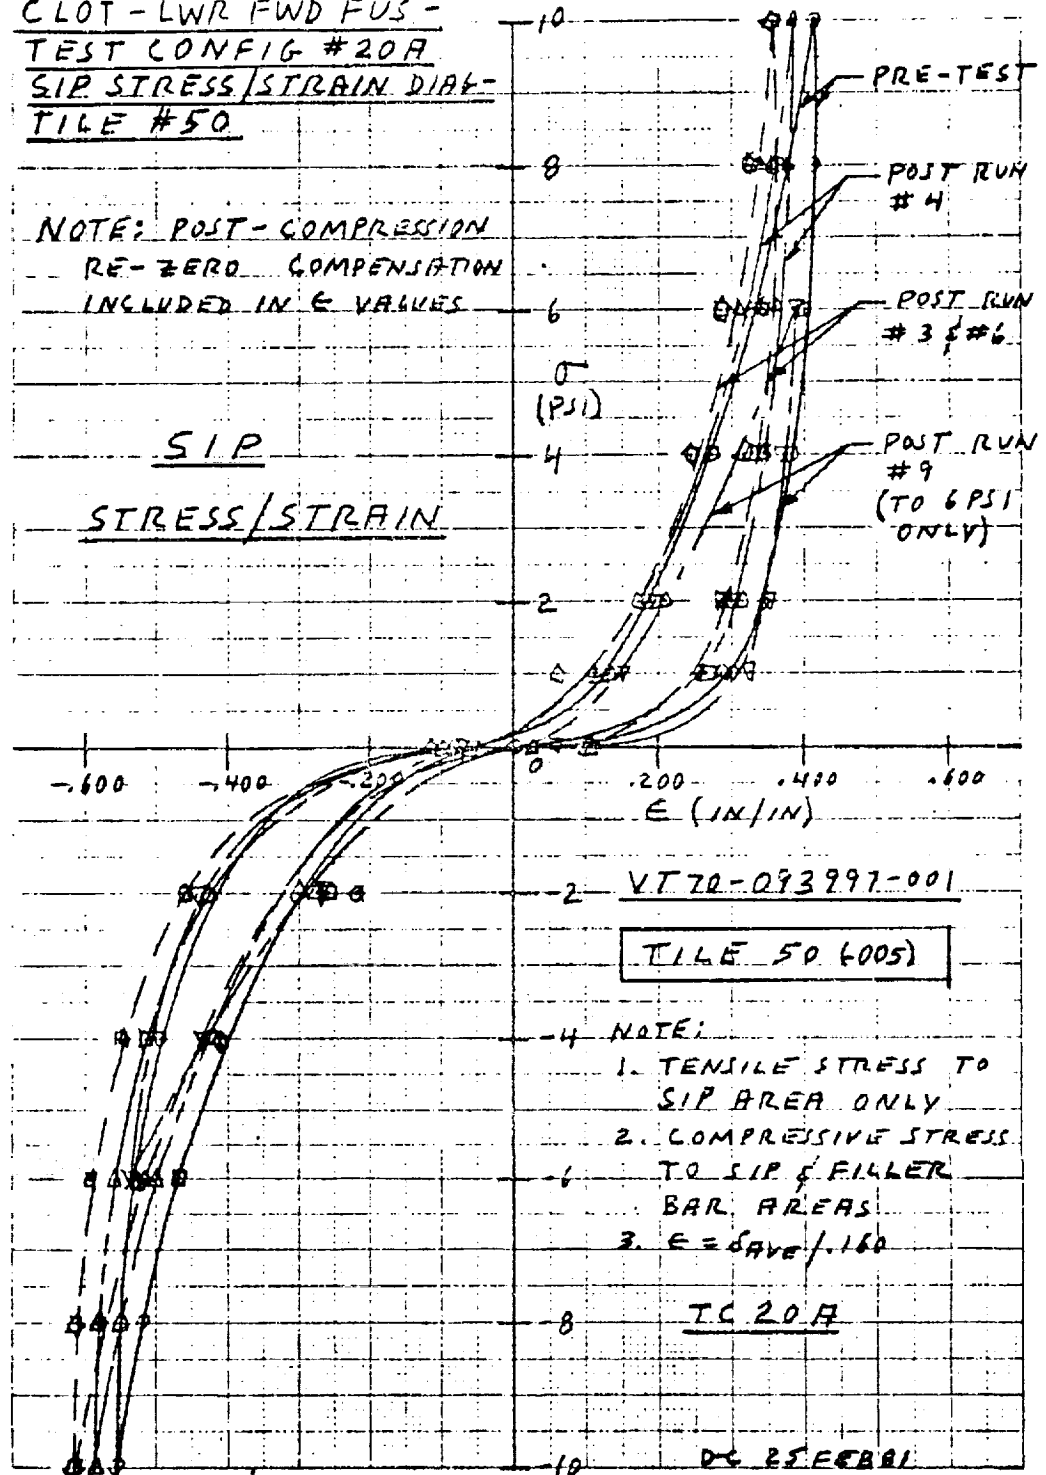 CLOT - LWR FWD FUS -
TEST CONFIG #20A
SIP STRESS/STRAIN DIAG-
TILE #50
NOTE: POST-COMPRESSION
RE-ZERO COMPENSATION
INCLUDED IN ϵ VALUES
SIP
STRESS/STRAIN
10
8
6
σ
(PSI)
4
2
0
-2
-4
-6
-8
-10
PRE-TEST
POST RUN
#4
POST RUN
#3 & #6
POST RUN
#9
(TO 6 PSI
ONLY)
-.600
-.400
-.200
.200
.400
.600
ϵ (IN/IN)
VT70-093997-001
TILE 50 (005)
NOTE:
1. TENSILE STRESS TO
SIP AREA ONLY
2. COMPRESSIVE STRESS
TO SIP & FILLER
BAR AREAS
3. ϵ = δAVE/.160
TC 20A
DC 25 FEB 81